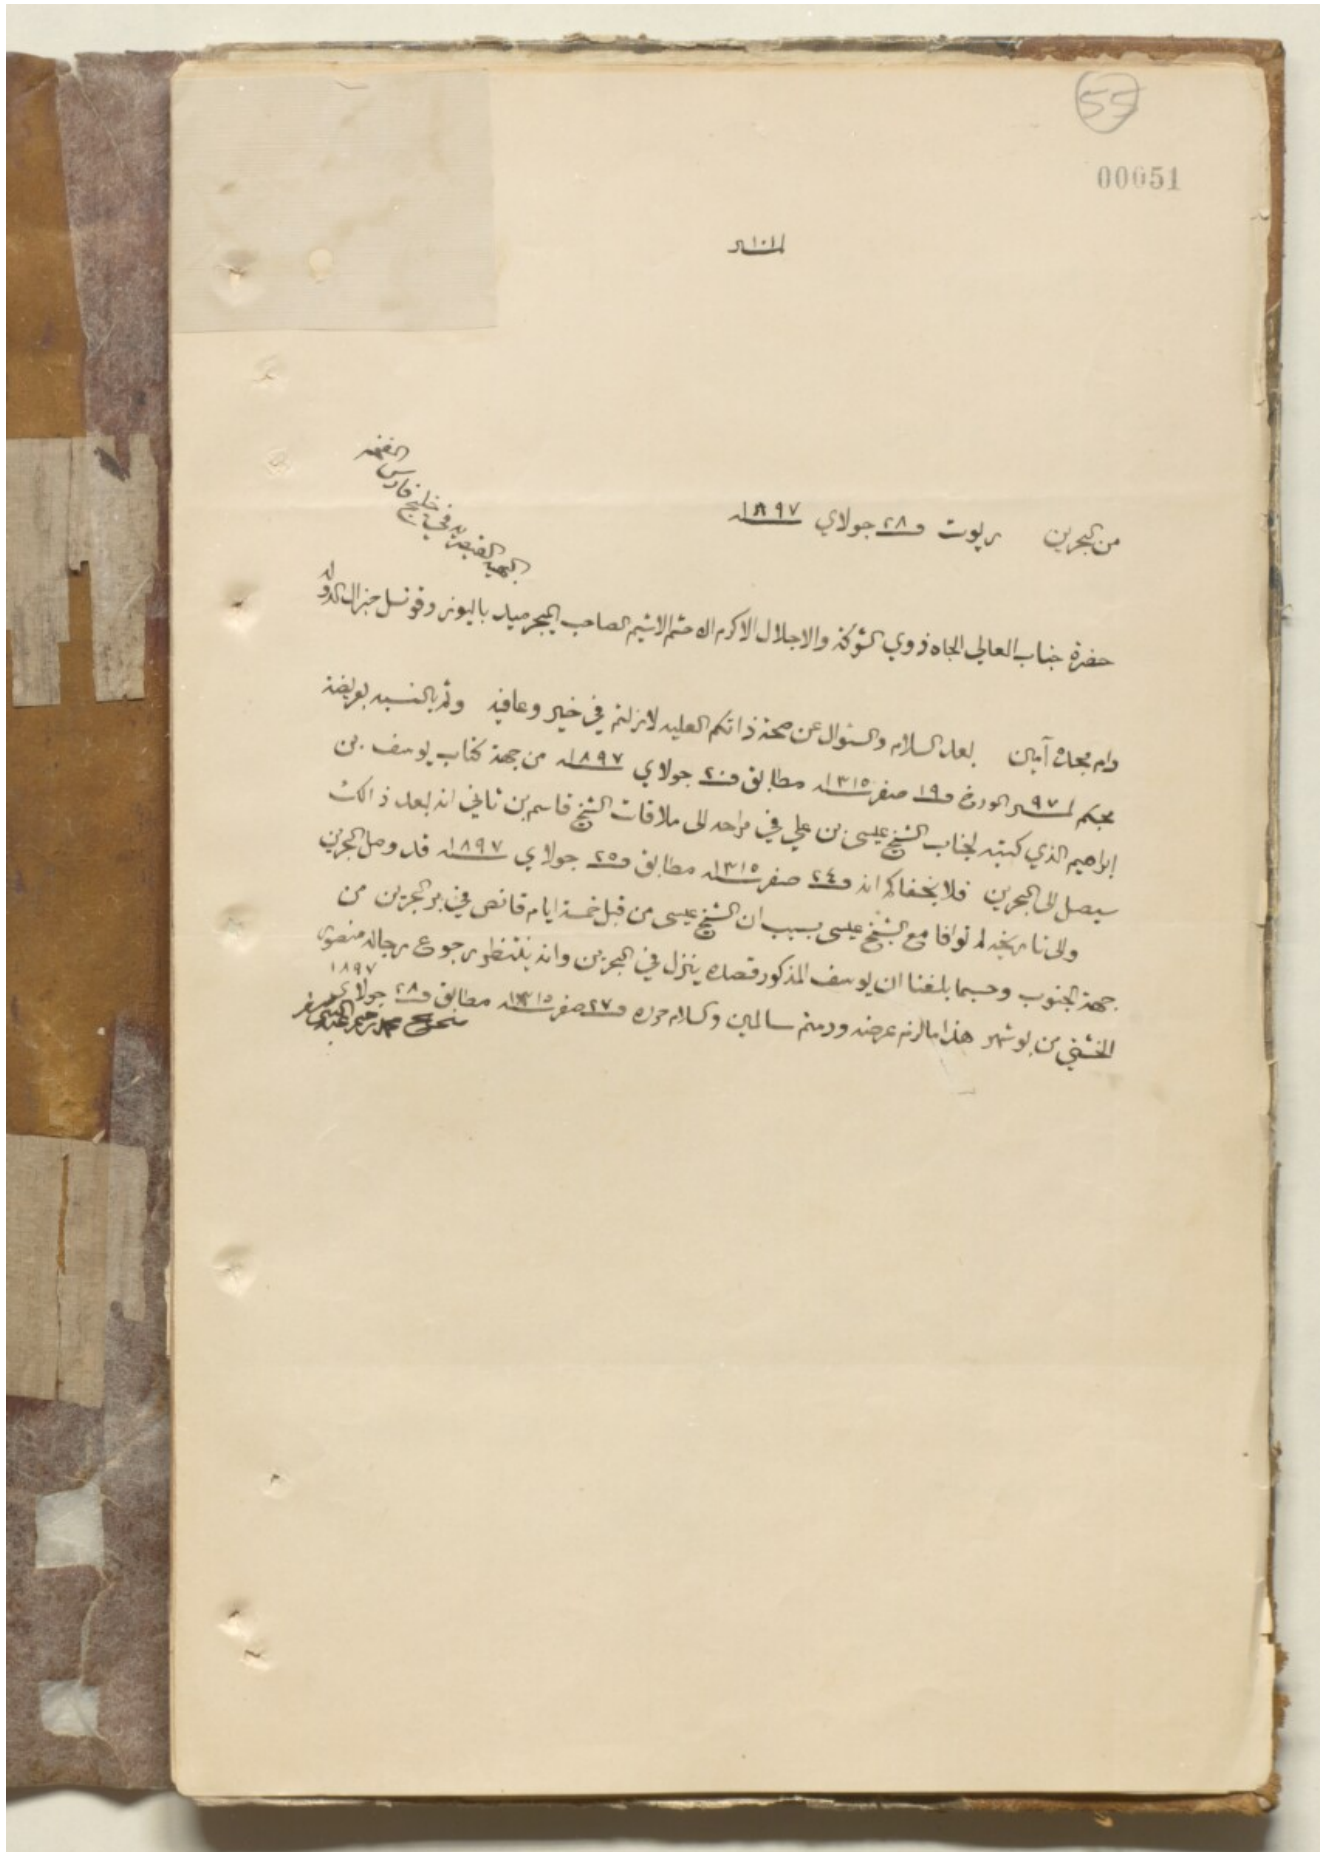 55
00051
نمر ١٠١
من البحرين رپوت في ٢٨ جولاي ١٨٩٧
حضرة جناب العالي الجاه ذوي الشوكة والاجلال الاكرم الاحتشم الافخم الصاحب الميجر ميد باليوز وقونسل جنرال الدولة
البهية القيصرية في خليج فارس المفخم
دام مجده آمين بعد السلام والسئوال عن صحة ذاتكم العليه لازلتم في خير وعافيه وثم بالنسبه بعريضة
محبكم نمر ٩٧ المورخ في ١٩ صفر ١٣١٥ مطابق في ٢٠ جولاي ١٨٩٧ من جهة كتاب يوسف بن
ابراهيم الذي كتبه لجناب الشيخ عيسى بن علي في مراحه الى ملاقات الشيخ قاسم بن ثاني انه بعد ذالك
سيصل الى البحرين فلا يخفاكم انه في ٢٤ صفر ١٣١٥ مطابق في ٢٥ جولاي ١٨٩٧ قد وصل البحرين
والى تاريخه لم توافا مع الشيخ عيسى بسبب ان الشيخ عيسى من قبل خمسة ايام قانص في بر البحرين من
جهة الجنوب وحسبما بلغنا ان يوسف المذكور قصده ينزل في البحرين وانه ينتظر رجوع رجاله منصور
الخشتي من بوشهر هذا ما لزم عرضه ودمتم سالمين والسلام حرره في ٢٧ صفر ١٣١٥ مطابق في ٢٨ جولاي ١٨٩٧
محمد رحيم